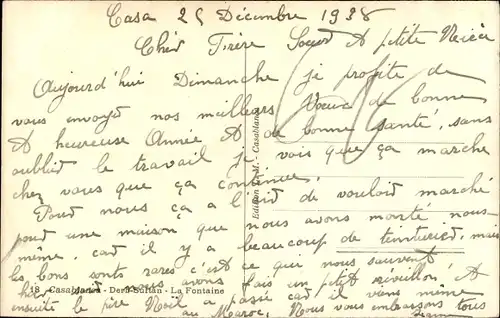 Casa 25 Décembre 1938
Cher Frère Soeur & petite Nièce
Aujourd'hui Dimanche je profite de
vous envoyer nos meilleurs Voeux de bonne
& heureuse Année & de bonne santé, sans
oublier le travail je vois que ça marche
chez vous que ça continue.
Pour nous ça a l'air de vouloir marché
pour une maison que nous avons monté nous-
même, car il y a beaucoup de teinturier, mais
les bons sont rares c'est ce qui nous sauvent
hier nous avons fais un petit réveillon, &
ensuite le père Noël a passé car il vient même
au Maroc, Nous vous embrassons tous
Edition - Casablanca
18 - Casablanca - Derb Sultan - La Fontaine